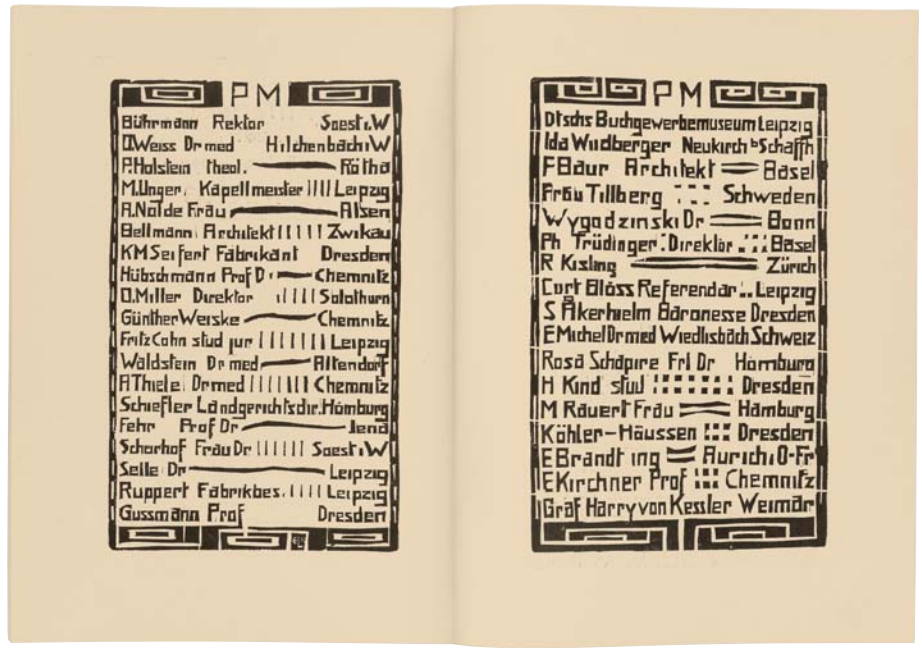 PM
Bührmann Rektor Soest i.W
O.Weiss Dr med Hilchenbach i.W
P.Holstein theol. Rötha
M.Unger. Kapellmeister Leipzig
A.Nolde Frau Alsen
Bellmann Architekt Zwikau
KMSeifert Fabrikant Dresden
Hübschmann Prof Dr Chemnitz
O.Miller Direktor Solothurn
Günther Weiske Chemnitz
Fritz Cohn stud jur Leipzig
Waldstein Dr med Altendorf
A Thiele Dr med Chemnitz
Schiefler Landgerichtsdir. Hamburg
Fehr Prof Dr Jena
Schorhof Frau Dr Soest i.W
Selle Dr Leipzig
Ruppert Fabrikbes. Leipzig
Gussmann Prof Dresden
PM
Dtschs Buchgewerbemuseum Leipzig
Ida Wildberger Neukirch b Schaffh
F Baur Architekt Basel
Frau Tillberg Schweden
Wygodzinski Dr Bonn
Ph Trüdinger Direktor Basel
R Kisling Zürich
Curt Blöss Referendar Leipzig
S Åkerhielm Baronesse Dresden
E Michel Dr med Wiedlisbach Schweiz
Rosa Schapire Frl Dr Hamburg
H Kind stud Dresden
M Rauert Frau Hamburg
Köhler-Haussen Dresden
E Brandt ing Aurich i O-Fr
E Kirchner Prof Chemnitz
Graf Harry von Kessler Weimar